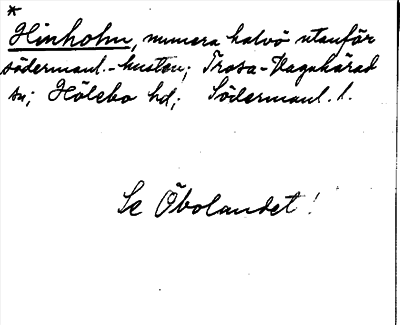 *
Hinholm, numera halvö utanför
södermanl.-kusten; Trosa-Vagnhärad
sn; Hölebo hd; Södermanl. l.
Se Öbolandet!